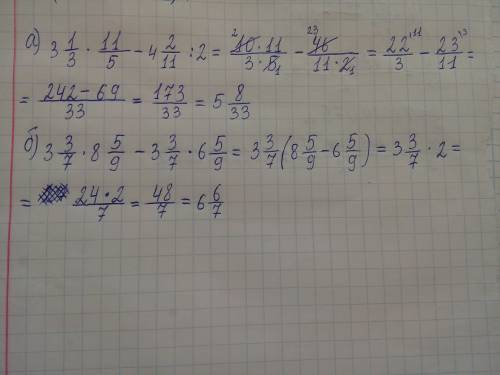 а) 3 1/3 · 11/5 − 4 2/11 : 2 = 10·11/3·5 − 46/11·2 = 22/3 − 23/11 =
= 242−69/33 = 173/33 = 5 8/33
б) 3 3/7 · 8 5/9 − 3 3/7 · 6 5/9 = 3 3/7 (8 5/9 − 6 5/9) = 3 3/7 · 2 =
= 24·2/7 = 48/7 = 6 6/7